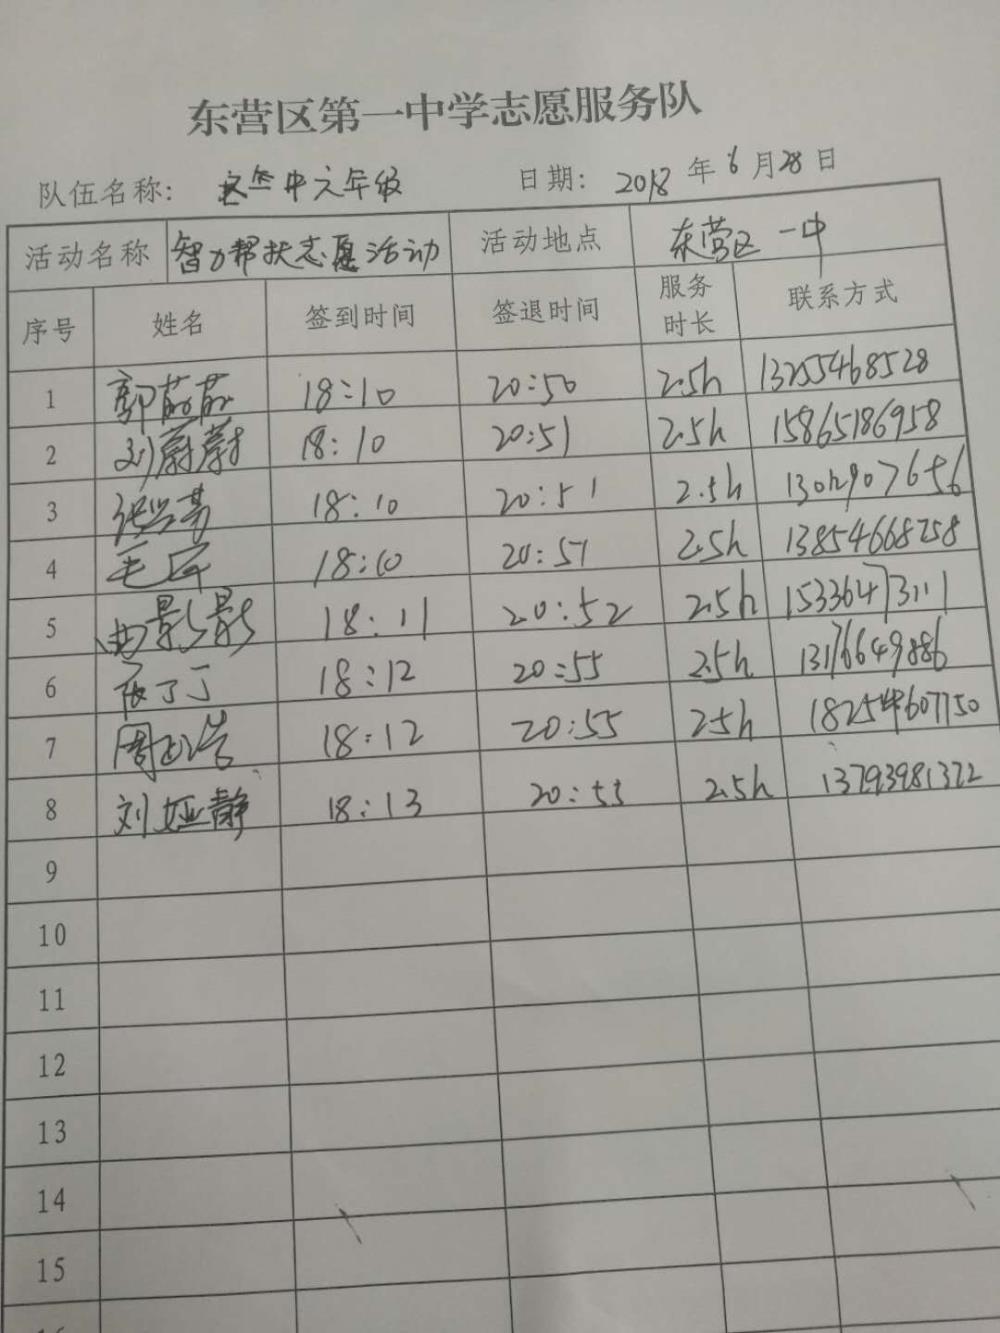 东营区第一中学志愿服务队
队伍名称: 区一中六年级 日期: 2018年6月28日
活动名称 智力帮扶志愿活动 活动地点 东营区一中
序号 姓名 签到时间 签退时间 服务时长 联系方式
1 郭茹茹 18:10 20:50 2.5h 13255468528
2 刘蔚蔚 18:10 20:51 2.5h 15865186958
3 18:10 20:51 2.5h
4 毛 18:10 20:51 2.5h 13854668758
5 曲影影 18:11 20:52 2.5h 15336473111
6 丁丁 18:12 20:55 2.5h 13176649886
7 周 18:12 20:55 2.5h
8 刘娅静 18:13 20:55 2.5h 13793981372
9
10
11
12
13
14
15